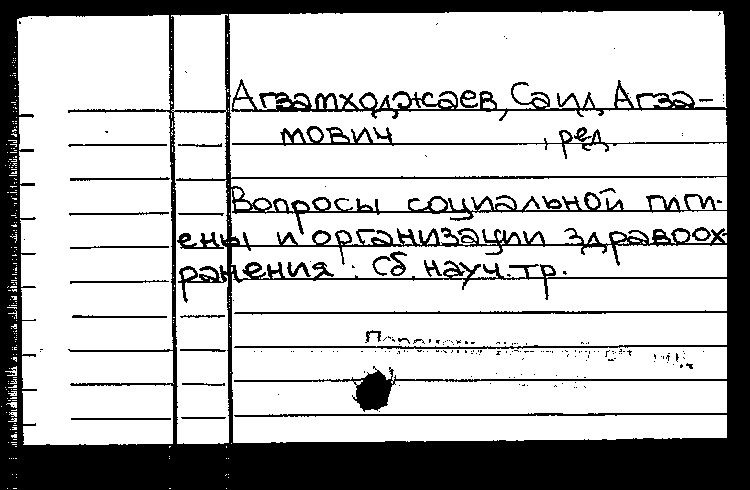 Агзамходжаев, Саид Агза-
мович , ред.
Вопросы социальной гиги-
ены и организации здравоох-
ранения : Сб. науч. тр.